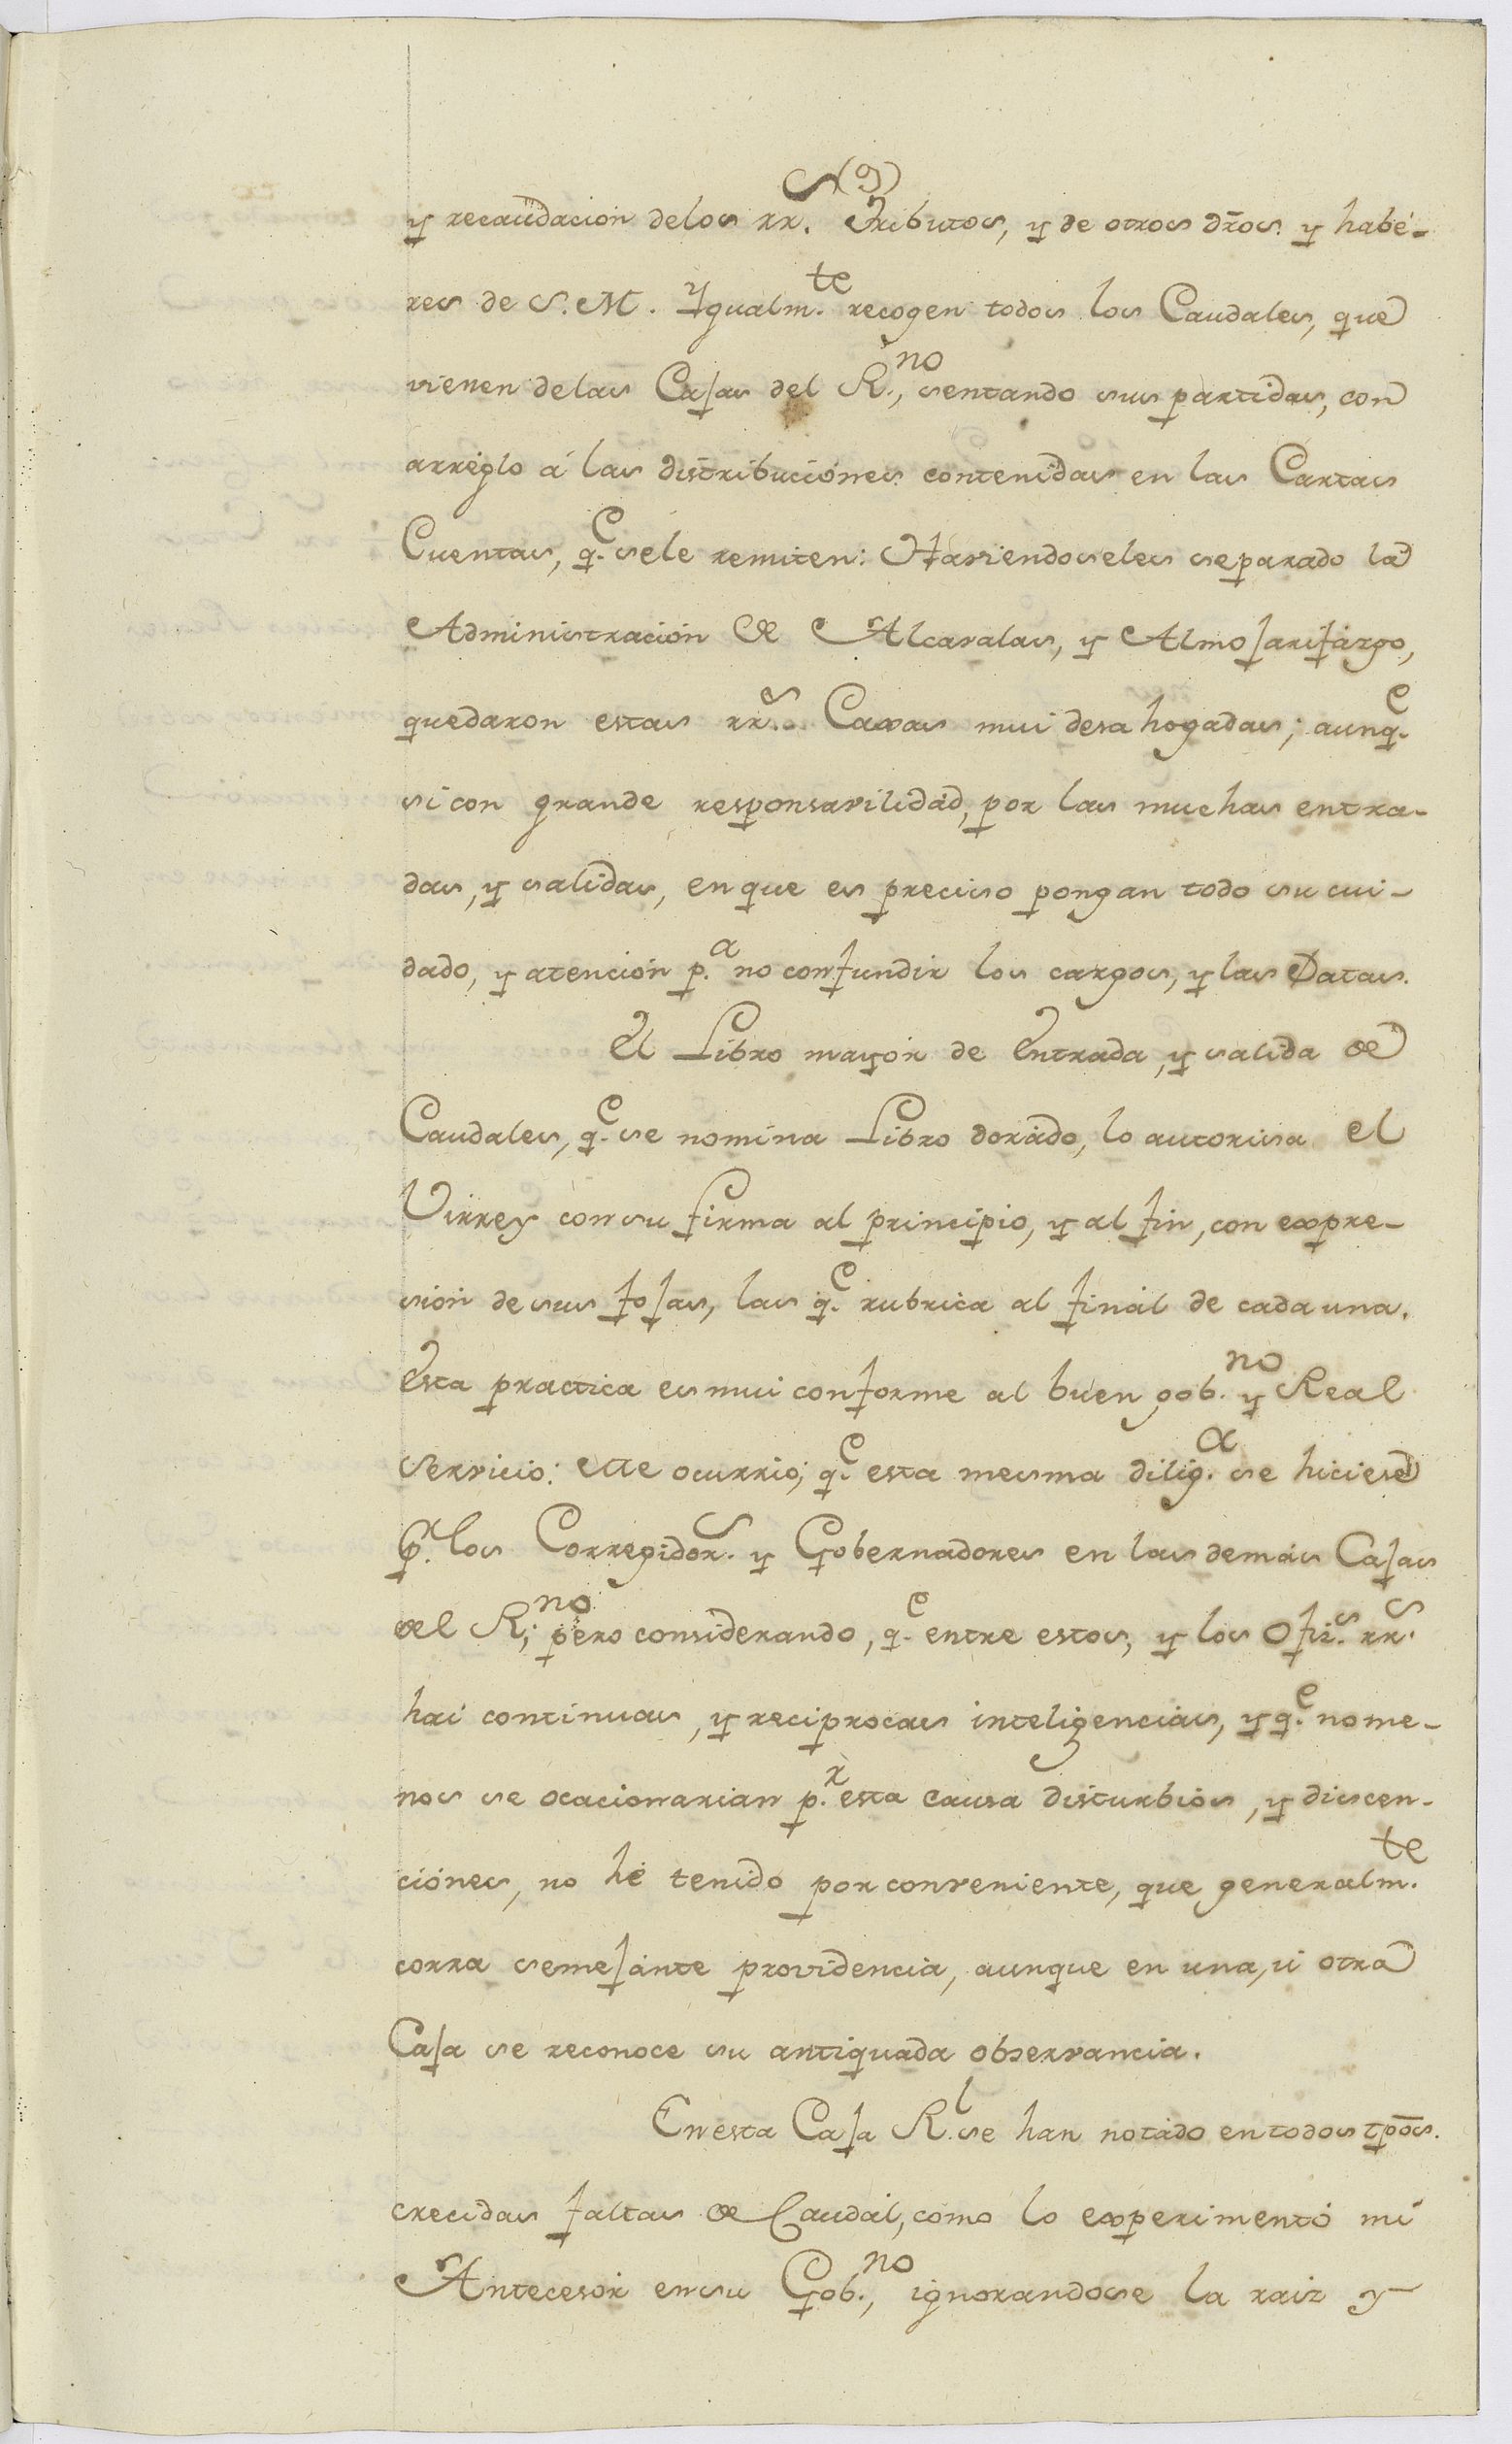 s(9)
y recaudacion delos rr. Tributos, y de otros dr̃os. y habé-
res de S. M. Ygualm.te recogen todos los Caudales, que
vienen delas Cajas del R.no, sentando sus partidas, con
arréglo á las distribuciónes contenidas en las Cartas
Cuentas, q.e sele remiten: Haviendoseles separado la
Administración de Alcavalas, y Almojarifázgo,
quedaron estas rr.s Caxas mui desahogadas; aunq.e
si con grande responsavilidád, por las muchas entra-
das, y salidas, en que es preciso pongan todo su cui-
dado, y atención p.a no confundir los cargos, y las Datas.
El Libro mayór de Entrada, y salida de
Caudales, q.e se nomina Libro dorádo, lo autorisa el
Virrey con su firma al principio, y al fin, con expre-
sión de sus fojas, las q.e rubrica al finál de cada una.
Esta practica es mui conforme al buen gob.no y Real
servicio: Me ocurrio; q.e esta mesma dilig.a se hiciese
p.r los Corregidor.s y Gobernadores en las demás Cajas
del R.no; pero considerando, q.e entre estos, y los Ofiz.s rr.s
hai continuas, y reciprocas inteligencias, y q.e no me-
nos se ocacionarian p.r esta causa disturbios, y discen-
ciónes, no hé tenido por conveniente, que generalm.te
corra semejánte providencia, aunque en una, ú otra
Caja se reconoce su antiquada observancia.
En esta Caja R.l se han notádo en todos tp̃os.
crecidas faltas de Caudál, como lo experimentó mi
Antecesór en su Gob.no, ignorandose la raiz y